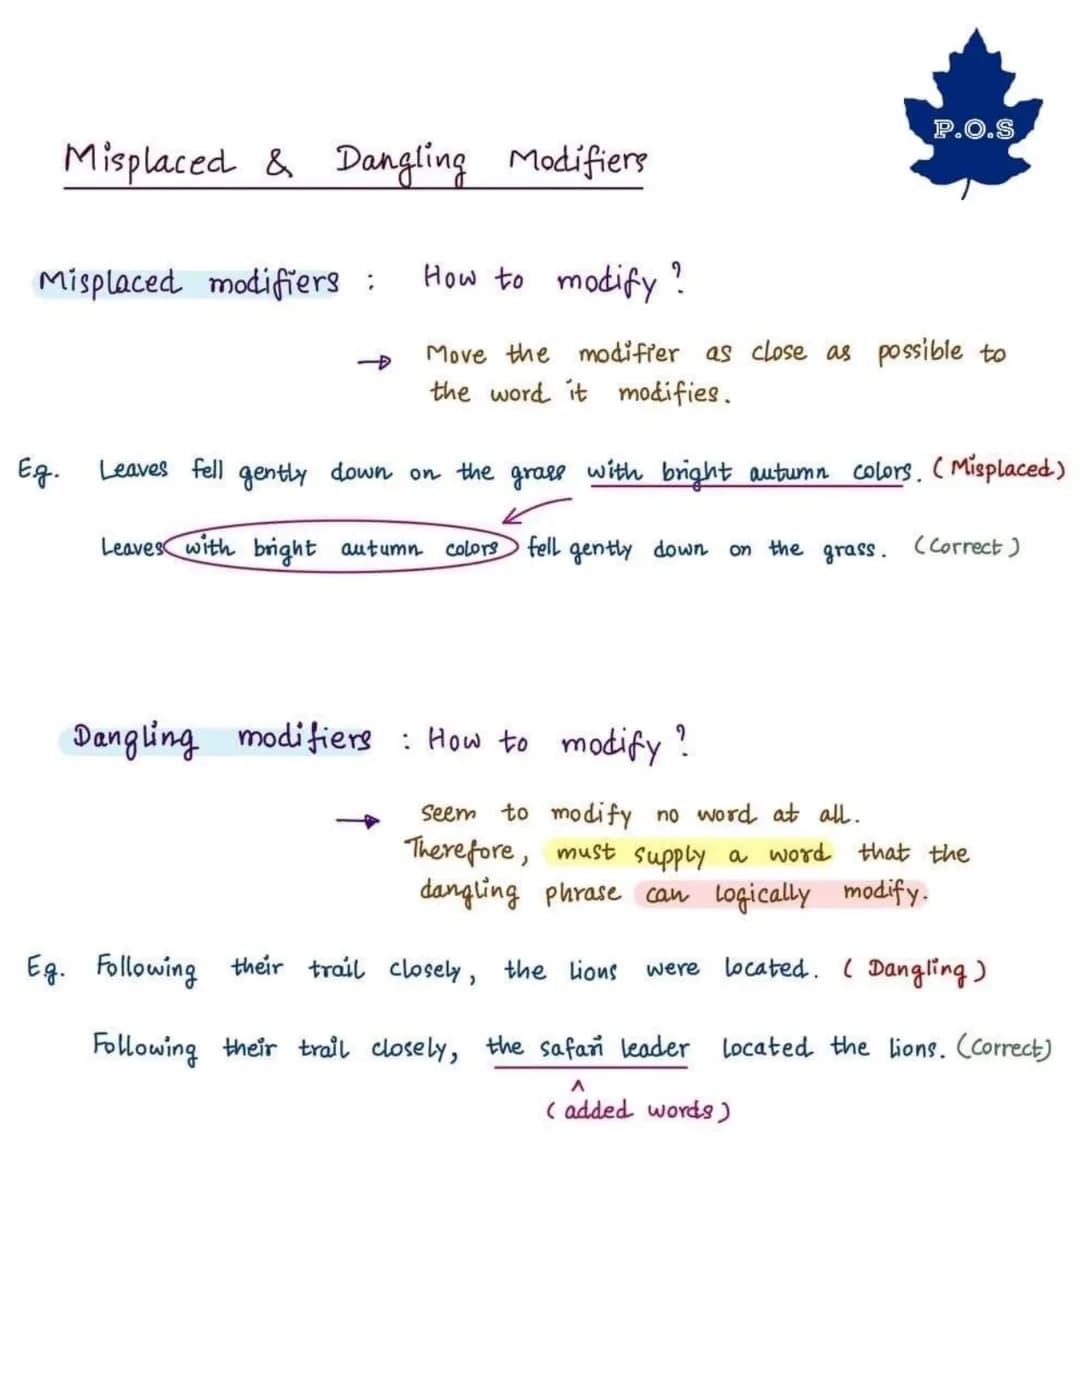 P.O.S
Misplaced & Dangling Modifiers
Misplaced modifiers : How to modify?
→ Move the modifier as close as possible to
the word it modifies.
Eg. Leaves fell gently down on the grass with bright autumn colors. (Misplaced)
Leaves with bright autumn colors fell gently down on the grass. (Correct)
Dangling modifiers : How to modify?
→ Seem to modify no word at all.
Therefore, must supply a word that the
dangling phrase can logically modify.
Eg. Following their trail closely, the lions were located. (Dangling)
Following their trail closely, the safari leader located the lions. (Correct)
^
(added words)